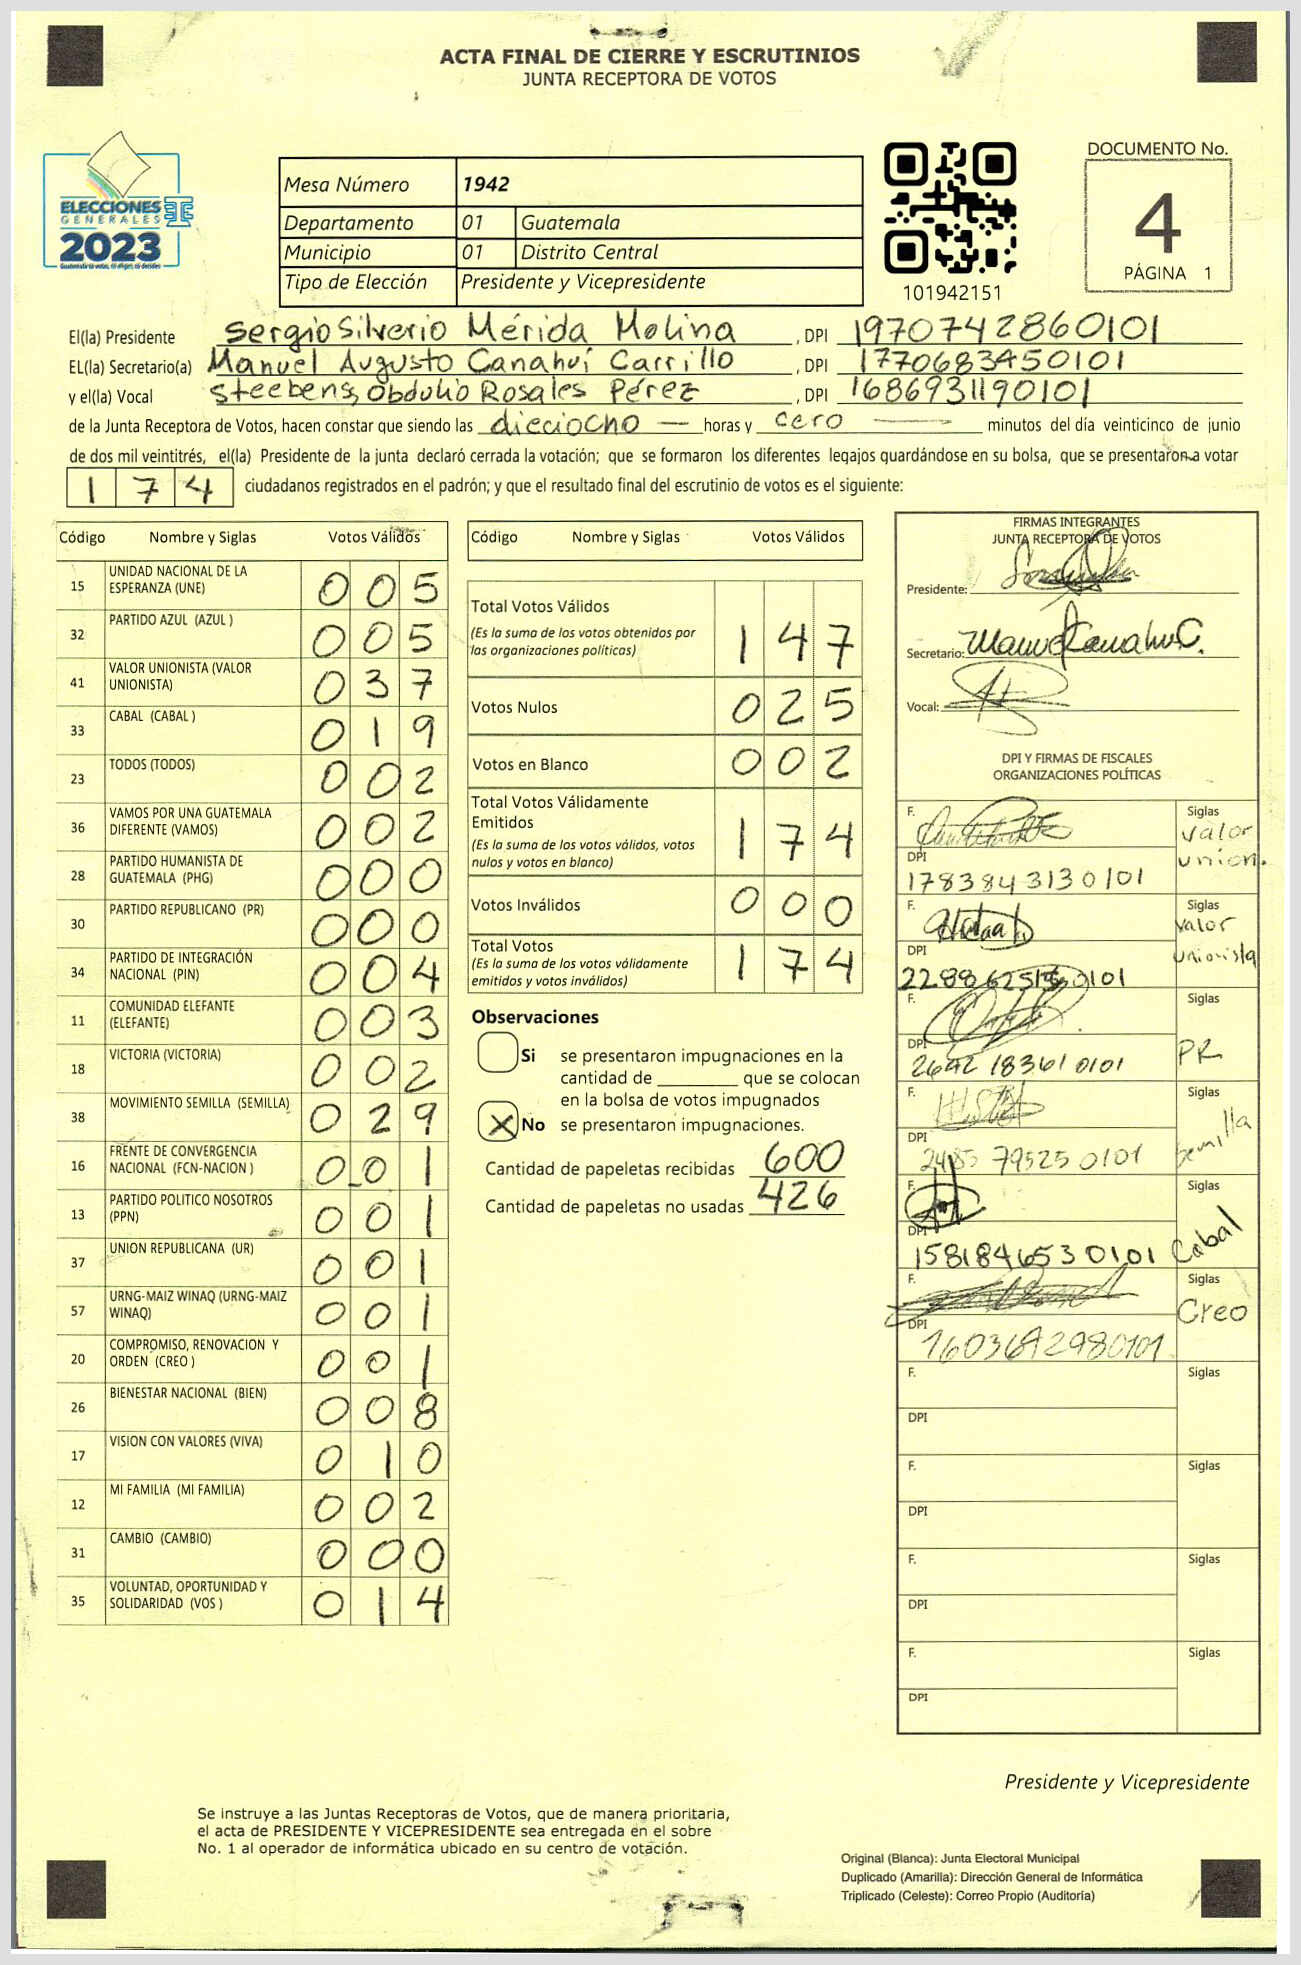 ACTA FINAL DE CIERRE Y ESCRUTINIOS
JUNTA RECEPTORA DE VOTOS
ELECCIONES
GENERALES
2023
Mesa Número 1942
Departamento 01 Guatemala
Municipio 01 Distrito Central
Tipo de Elección Presidente y Vicepresidente
101942151
DOCUMENTO No.
4
PÁGINA 1
El(la) Presidente Sergio Silverio Mérida Molina, DPI 1970742860101
EL(la) Secretario(a) Manuel Augusto Canahuí Carrillo, DPI 1770683450101
y el(la) Vocal Steebens, Obdulio Rosales Pérez, DPI 1686931190101
de la Junta Receptora de Votos, hacen constar que siendo las dieciocho — horas y cero — minutos del día veinticinco de junio
de dos mil veintitrés, el(la) Presidente de la junta declaró cerrada la votación; que se formaron los diferentes legajos guardándose en su bolsa, que se presentaron a votar
174 ciudadanos registrados en el padrón; y que el resultado final del escrutinio de votos es el siguiente:
Código Nombre y Siglas Votos Válidos
15 UNIDAD NACIONAL DE LA
ESPERANZA (UNE) 005
32 PARTIDO AZUL (AZUL ) 005
41 VALOR UNIONISTA (VALOR
UNIONISTA) 037
33 CABAL (CABAL ) 019
23 TODOS (TODOS) 002
36 VAMOS POR UNA GUATEMALA
DIFERENTE (VAMOS) 002
28 PARTIDO HUMANISTA DE
GUATEMALA (PHG) 000
30 PARTIDO REPUBLICANO (PR) 000
34 PARTIDO DE INTEGRACIÓN
NACIONAL (PIN) 004
11 COMUNIDAD ELEFANTE
(ELEFANTE) 003
18 VICTORIA (VICTORIA) 002
38 MOVIMIENTO SEMILLA (SEMILLA) 029
16 FRENTE DE CONVERGENCIA
NACIONAL (FCN-NACION ) 001
13 PARTIDO POLITICO NOSOTROS
(PPN) 001
37 UNION REPUBLICANA (UR) 001
57 URNG-MAIZ WINAQ (URNG-MAIZ
WINAQ) 001
20 COMPROMISO, RENOVACION Y
ORDEN (CREO ) 001
26 BIENESTAR NACIONAL (BIEN) 008
17 VISION CON VALORES (VIVA) 010
12 MI FAMILIA (MI FAMILIA) 002
31 CAMBIO (CAMBIO) 000
35 VOLUNTAD, OPORTUNIDAD Y
SOLIDARIDAD (VOS ) 014
Código Nombre y Siglas Votos Válidos
Total Votos Válidos
(Es la suma de los votos obtenidos por
las organizaciones políticas) 147
Votos Nulos 025
Votos en Blanco 002
Total Votos Válidamente
Emitidos
(Es la suma de los votos válidos, votos
nulos y votos en blanco) 174
Votos Inválidos 000
Total Votos
(Es la suma de los votos válidamente
emitidos y votos inválidos) 174
Observaciones
Si se presentaron impugnaciones en la
cantidad de ________ que se colocan
en la bolsa de votos impugnados
X No se presentaron impugnaciones.
Cantidad de papeletas recibidas 600
Cantidad de papeletas no usadas 426
FIRMAS INTEGRANTES
JUNTA RECEPTORA DE VOTOS
Presidente:
Secretario:
Vocal:
DPI Y FIRMAS DE FISCALES
ORGANIZACIONES POLÍTICAS
F. Siglas
Valor
union.
DPI
1783843130101
F. Siglas
Valor
unionista
DPI
F. Siglas
PR
DPI
2642183610101
F. Siglas
Semilla
DPI
2485795250101
F. Siglas
Cabal
DPI
1581846530101
F. Siglas
Creo
DPI
F. Siglas
DPI
F. Siglas
DPI
F. Siglas
DPI
F. Siglas
DPI
Presidente y Vicepresidente
Se instruye a las Juntas Receptoras de Votos, que de manera prioritaria,
el acta de PRESIDENTE Y VICEPRESIDENTE sea entregada en el sobre
No. 1 al operador de informática ubicado en su centro de votación.
Original (Blanca): Junta Electoral Municipal
Duplicado (Amarilla): Dirección General de Informática
Triplicado (Celeste): Correo Propio (Auditoría)